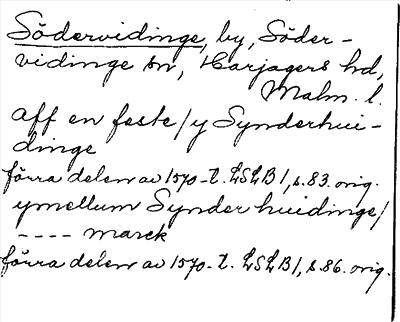 Södervidinge, by, Söder-
vidinge sn, Harjagers hd,
Malm. l.
aff en feste / y Synderhui-
dinge
förra delen av 1570-t. LSLB 1, s. 83. orig.
ymellum Synder huidinge /
---- marck
förra delen av 1570-t. LSLB 1, s. 86. orig.